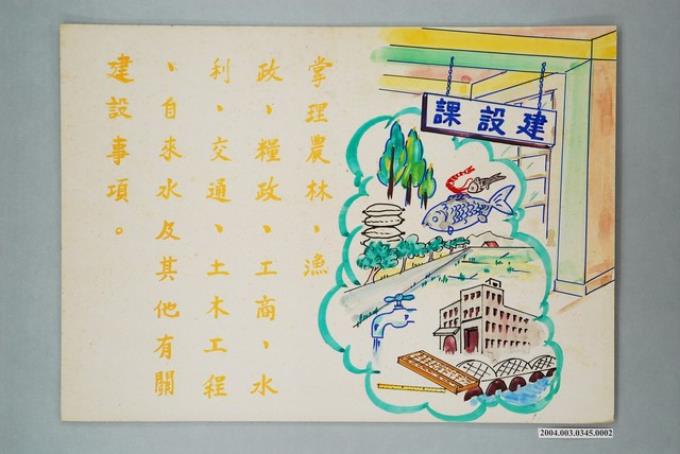 建設課
掌理農林、漁
政、糧政、工商、水
利、交通、土木工程
、自來水及其他有關
建設事項。
2004.003.0345.0002